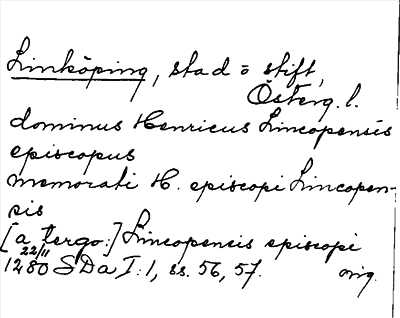 Linköping, stad o stift,
Österg. l.
dominus Henricus Lincopensis
episcopus
memorati H. episcopi Lincopen-
sis
[a tergo:] Lincopensis episcopi
22/11
1280 SDa I:1, ss. 56, 57. orig.